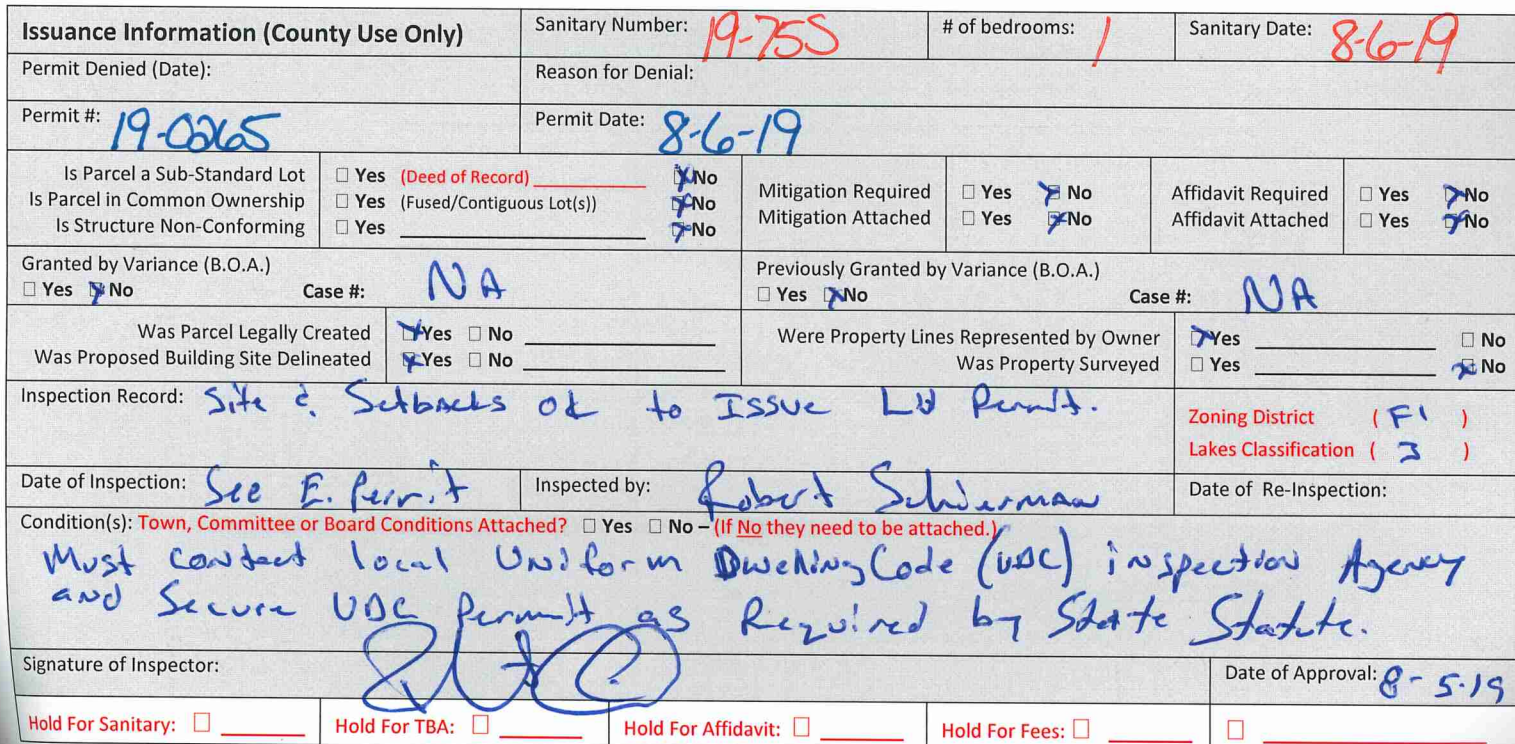 Issuance Information (County Use Only) Sanitary Number: 19-75S # of bedrooms: 1 Sanitary Date: 8-6-19
Permit Denied (Date): Reason for Denial:
Permit #: 19-0265 Permit Date: 8-6-19
Is Parcel a Sub-Standard Lot □ Yes (Deed of Record) ☒ No
Is Parcel in Common Ownership □ Yes (Fused/Contiguous Lot(s)) ☒ No
Is Structure Non-Conforming □ Yes ☒ No
Mitigation Required □ Yes ☒ No
Mitigation Attached □ Yes ☒ No
Affidavit Required □ Yes ☒ No
Affidavit Attached □ Yes ☒ No
Granted by Variance (B.O.A.)
□ Yes ☒ No Case #: NA
Previously Granted by Variance (B.O.A.)
□ Yes ☒ No Case #: NA
Was Parcel Legally Created ☒ Yes □ No
Was Proposed Building Site Delineated ☒ Yes □ No
Were Property Lines Represented by Owner ☒ Yes □ No
Was Property Surveyed □ Yes ☒ No
Inspection Record: Site & Setbacks ok to Issue LU Permit.
Zoning District ( F1 )
Lakes Classification ( 3 )
Date of Inspection: See E. Permit Inspected by: Robert Schierman Date of Re-Inspection:
Condition(s): Town, Committee or Board Conditions Attached? □ Yes □ No – (If No they need to be attached.)
Must contact local Uniform Dwelling Code (UDC) inspection Agency
and Secure UDC Permit as Required by State Statute.
Signature of Inspector: Date of Approval: 8-5-19
Hold For Sanitary: □ Hold For TBA: □ Hold For Affidavit: □ Hold For Fees: □ □